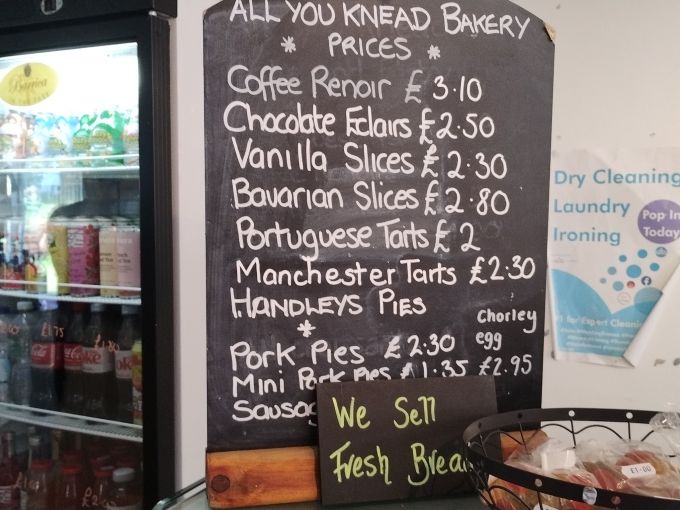 ALL YOU KNEAD BAKERY
* PRICES *
Coffee Renoir £ 3.10
Chocolate Eclairs £2.50
Vanilla Slices £ 2.30
Bavarian Slices £ 2.80
Portuguese Tarts £ 2
Manchester Tarts £2.30
HANDLEYS PIES
*
Pork Pies £ 2.30
Mini Pork Pies £1.35
Chorley
egg
£2.95
We Sell
Fresh
Barrica
£1.75
£1.80
Coke
Dry Cleaning
Laundry
Ironing
Pop In
Today
£1.00